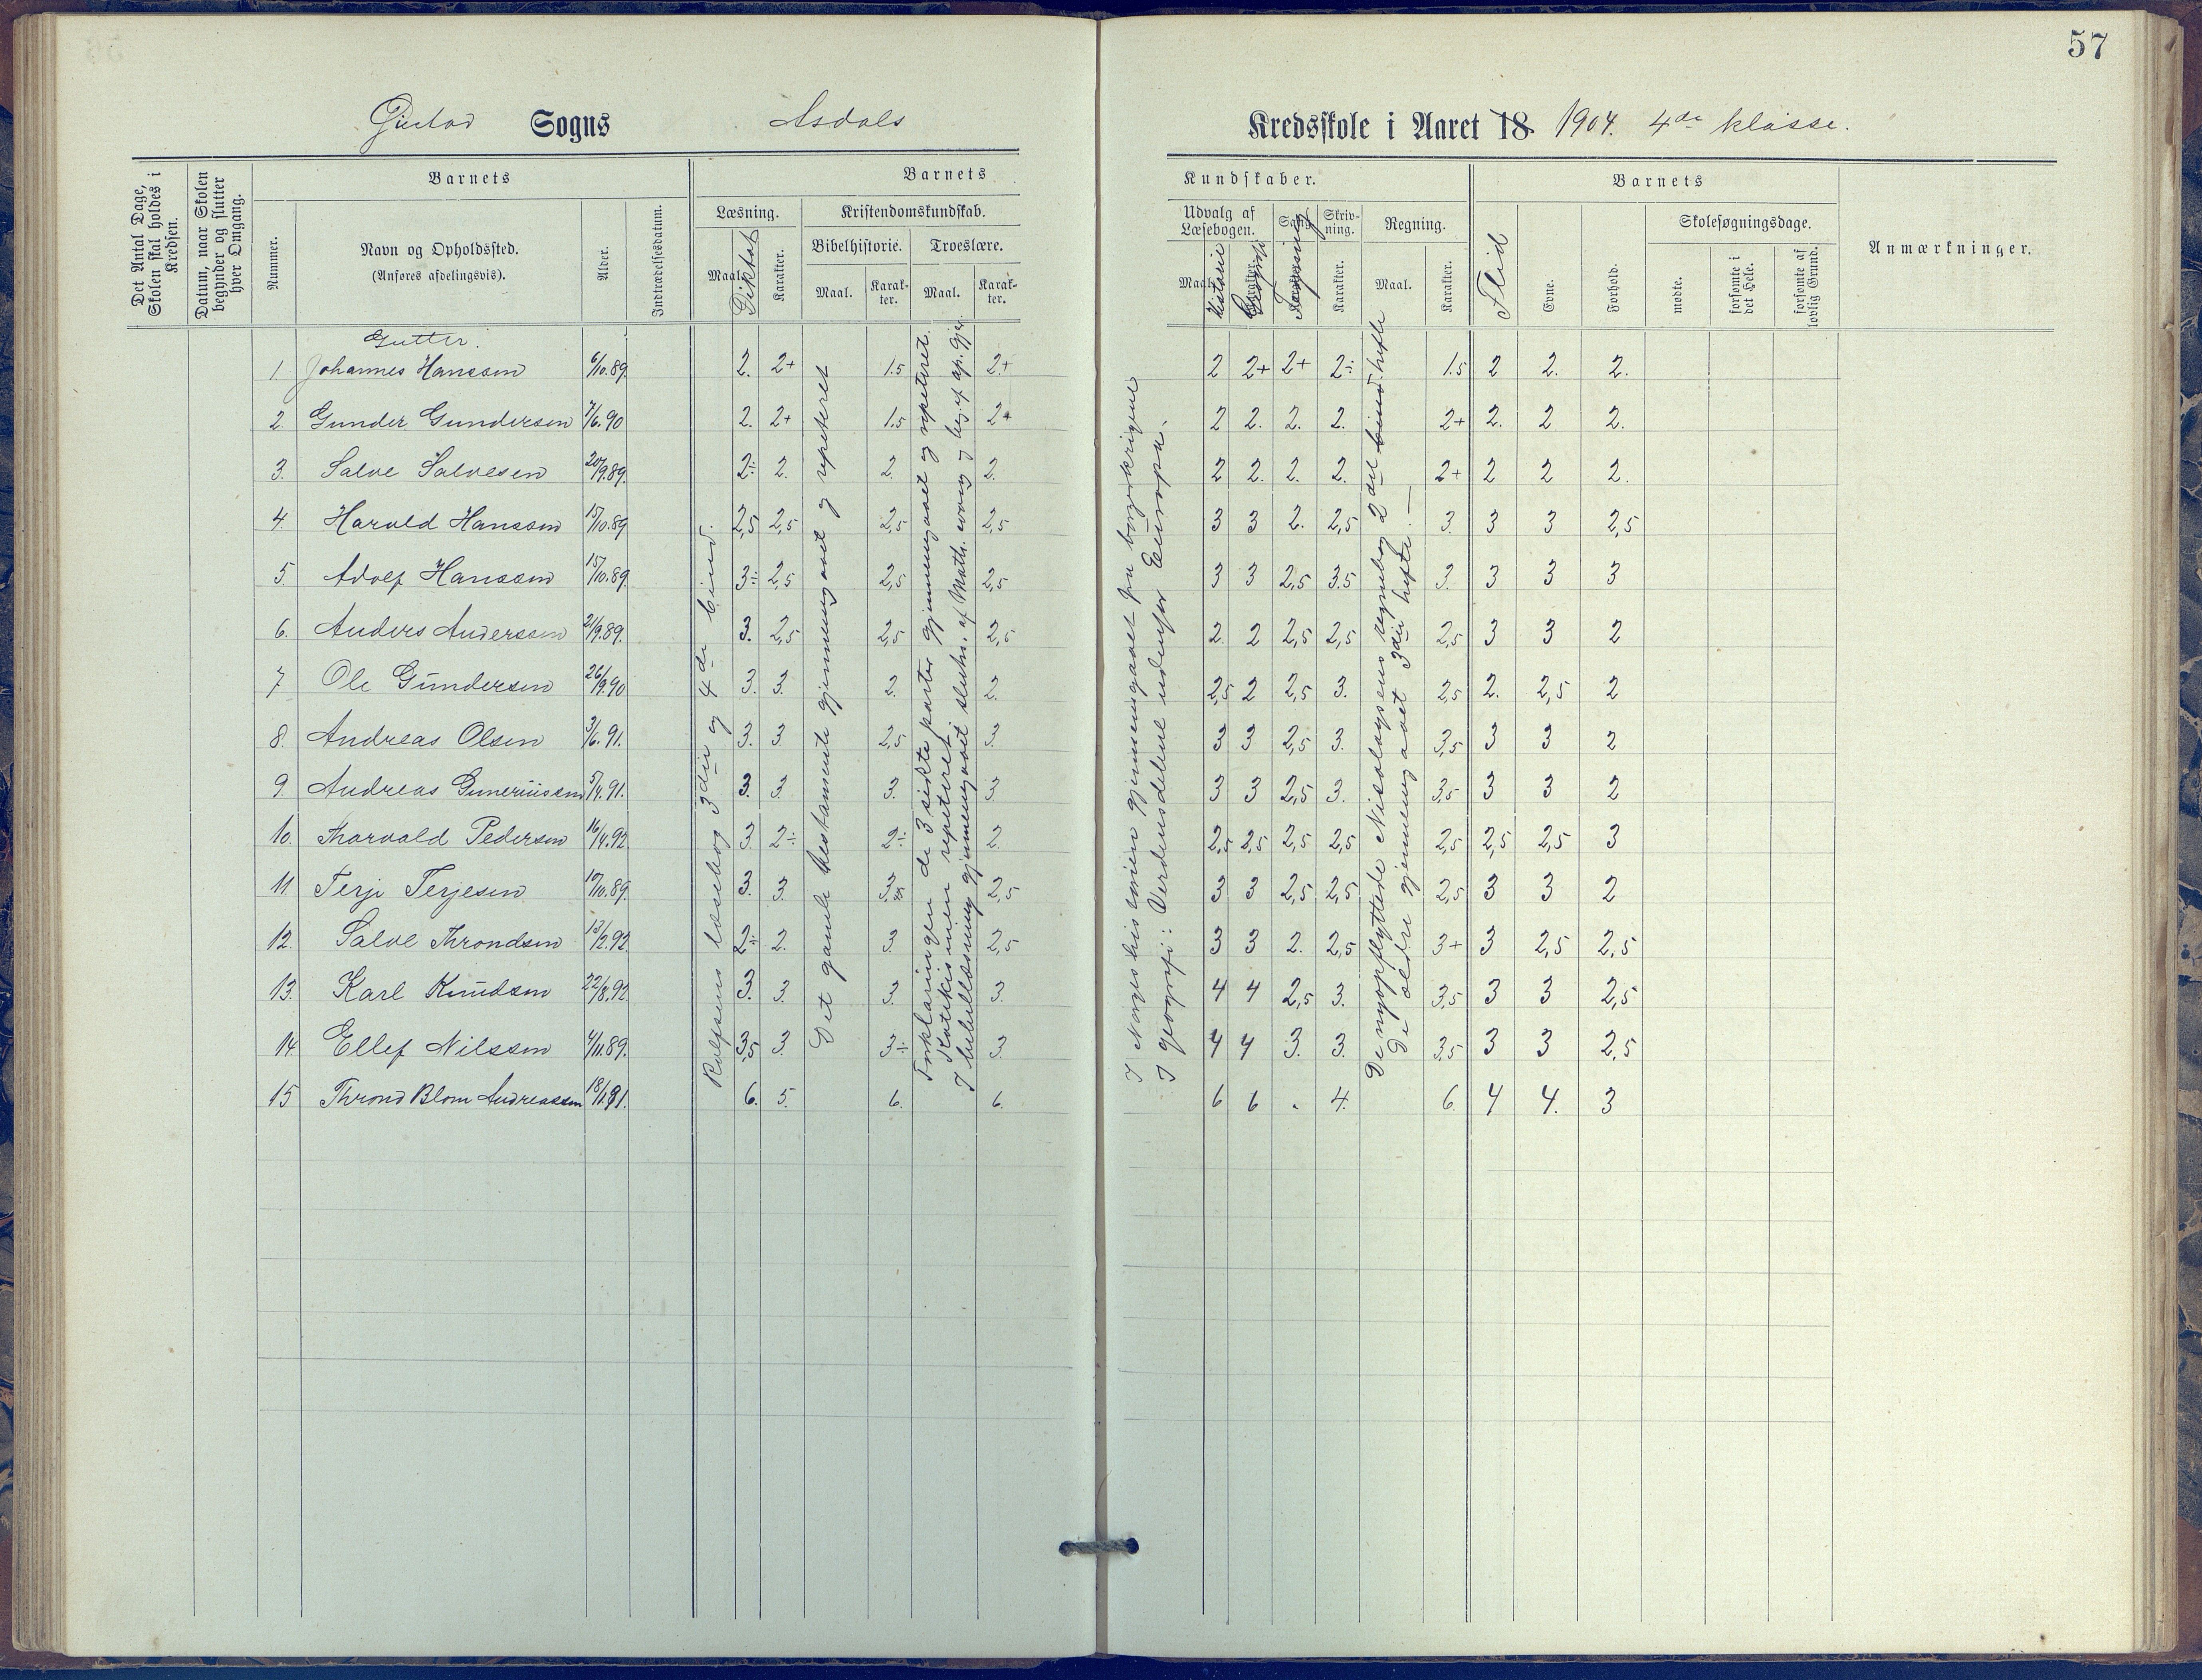 57
Gjestad Sogns Asdals Kredsskole i Aaret 18 1904. 4de klasse.
Det Antal Dage, Skolen skal holdes i Kredsen.
Datum, naar Skolen begynder og slutter hver Omgang.
Barnets
Nummer.
Navn og Opholdssted.
(Anføres afdelingsvis).
Alder.
Indtrædelsesdatum.
Barnets Kundskaber.
Læsning.
Maal.
Diktat
Karakter.
Kristendomskundskab.
Bibelhistorie.
Maal.
Karakter.
Troeslære.
Maal.
Karakter.
Udvalg af Læsebogen.
Maal.
Historie
Karakter.
Geografi
Sang.
Karakter.
Tegning
Skrivning.
Karakter.
Regning.
Maal.
Karakter.
Barnets
Flid
Evne.
Forhold.
Skolesøgningsdage.
mødte.
forsømte i det Hele.
forsømte af lovlig Grund.
Anmærkninger.
Gutter.
1. Johannes Hanssen 6/10.89. 2. 2+ 1.5 2+ 2 2+ 2+ 2÷ 1.5 2 2. 2.
2. Gunder Gundersen 7/6.90 2. 2+ 1.5 2+ 2 2. 2. 2. 2+ 2. 2 2.
3. Salve Salvesen 20/9.89. 2÷ 2. 2. 2. 2 2. 2. 2. 2+ 2 2 2.
4. Harald Hanssen 15/10.89 2,5 2,5 2,5 2,5 3 3 2. 2,5 3. 3 3 2,5
5. Adolf Hanssen 15/10.89 3÷ 2,5 2,5 2,5 3 3 2,5 3.5 3. 3 3 3
6. Anders Anderssen 21/9.89. 3. 2,5 2,5 2,5 2. 2 2,5 2,5 2,5 3 3 2
7 Ole Gundersen 26/9.90 3. 3. 2. 2. 2,5 2 2,5 3. 2,5 2. 2,5 2
8. Andreas Olsen 3/6.91. 3. 3. 2,5 3. 3 3 2,5 3. 3,5 3 3 2
9. Andreas Guneriussen 5/4.91. 3. 3. 3. 3. 3 3 2,5 3. 3.5 3 3 2
10. Thorvald Pedersen 16/4.92 3. 2÷ 2÷ 2. 2,5 2,5 2,5 2,5 2,5 2,5 2,5 3
11. Terje Terjesen 10/10.89. 3. 3. 3. 2,5 3 3 2,5 2,5 2,5 3 3 2
12. Salve Throndsen 13/2.92 2÷ 2. 3 2,5 3 3 2. 2,5 3+ 3 2,5 2,5
13. Karl Knudsen 22/8.92 3. 3. 3. 3. 4 4 2,5 3. 3,5 3 3 2,5
14. Ellef Nilssen 4/11.89. 3,5 3. 3÷ 3. 4 4 3. 3. 3.5 3 3 2,5
15 Thrond Blom Andreassen 18/1.91. 6. 5. 6. 6. 6 6 . 4. 6. 4 4. 3
Rolfsens læsebog 3die og 4de bind.
Det gamle testamente gjennemgaaet og repeteret
Forklaringen de 3 sidste parter gjennemgaaet og repeteret.
Katekismen repeteret
I bibellæsning gjennemgaaet slutn. af Math. evang. og beg. af ap. gjer.
I Norges historien gjennemgaaet fra borgerkrigene
I geografi: Verdensdelene udenfor Europa.
De nyopflyttede Nicolaysens regnebog 2del bind hefte
De ældre gjennemgaaet 3die hefte. —